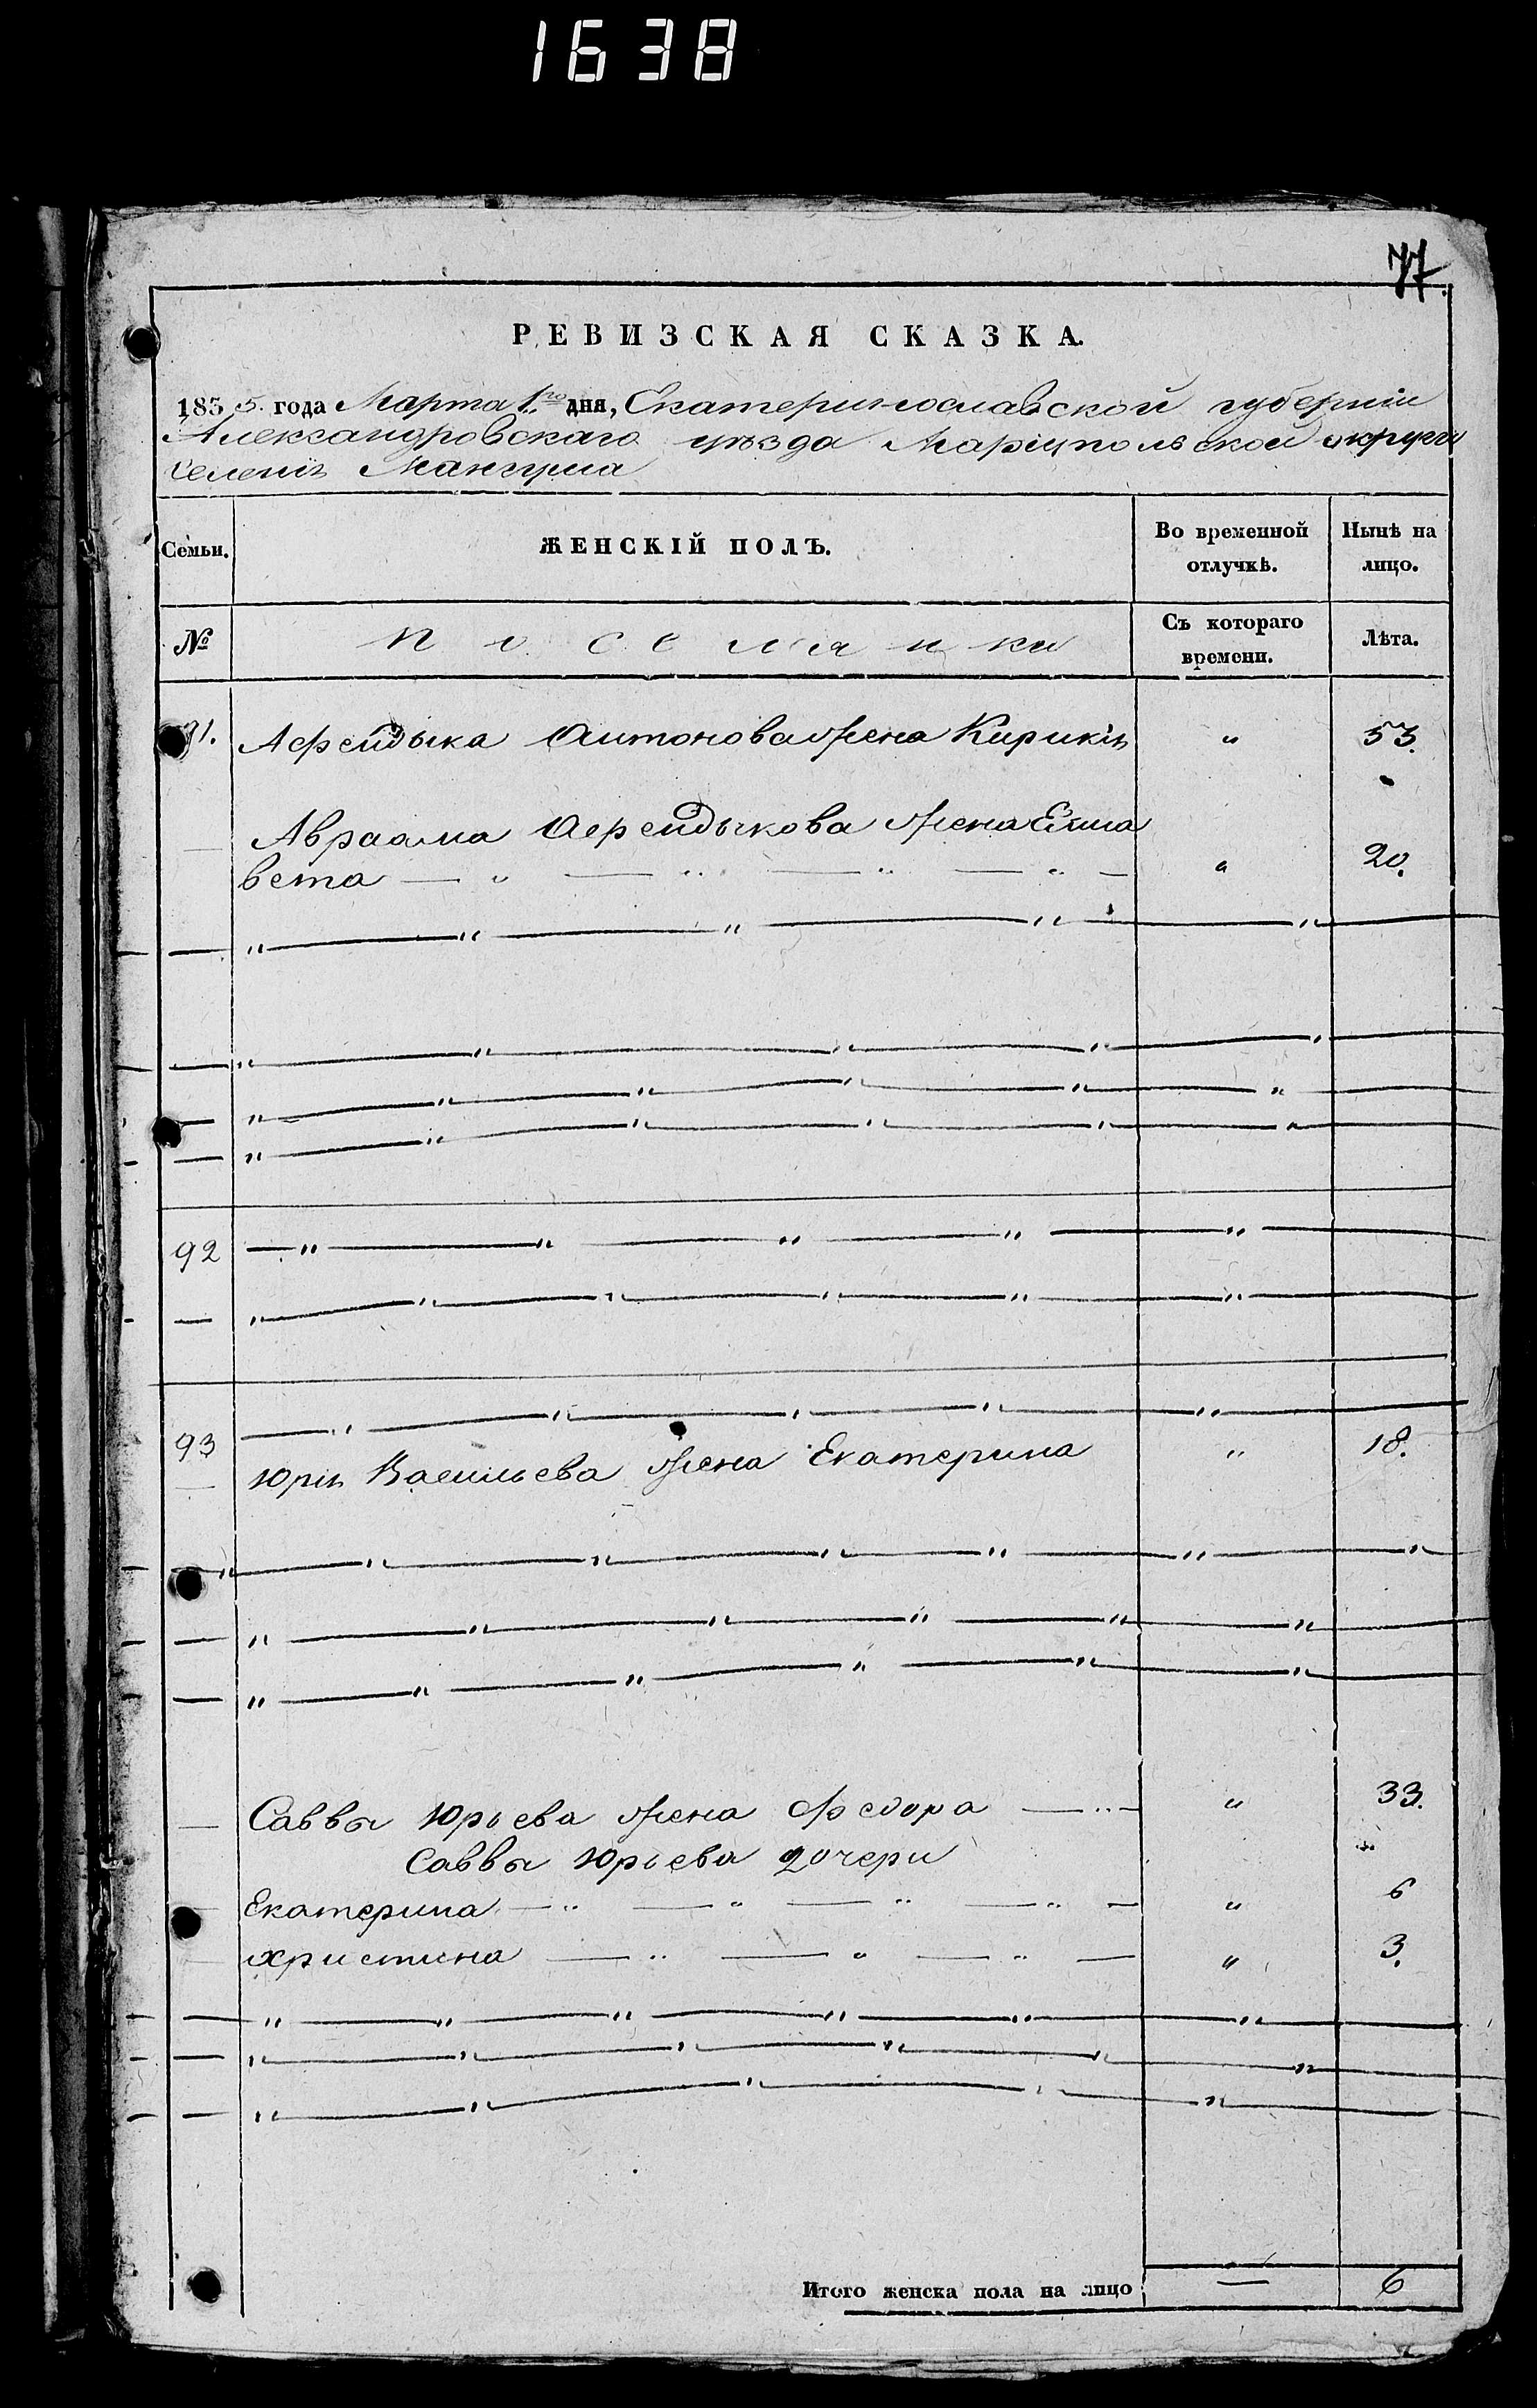 1638
77.
РЕВИЗСКАЯ СКАЗКА.
1855. года Марта 1го дня, Екатеринославской губерніи
Александровскаго уѣзда Маріупольской округи
селенія Мангуша
Семьи. ЖЕНСКІЙ ПОЛЪ. Во временной отлучкѣ. Нынѣ на лицо.
№ поселянки Съ котораго времени. Лѣта.
91. Афендыка Антонова жена Кирикія " 53.
Авраама Афендыкова жена Елиса
вета — " — " — " — " — " 20.
92
93
Юрія Васильева жена Екатерина " 18.
Саввы Юрьева жена Федора — " — " 33.
Саввы Юрьева дочери
Екатерина — " — " — " — " — " 6
Христина — " — " — " — " 3.
Итого женска пола на лицо — 6